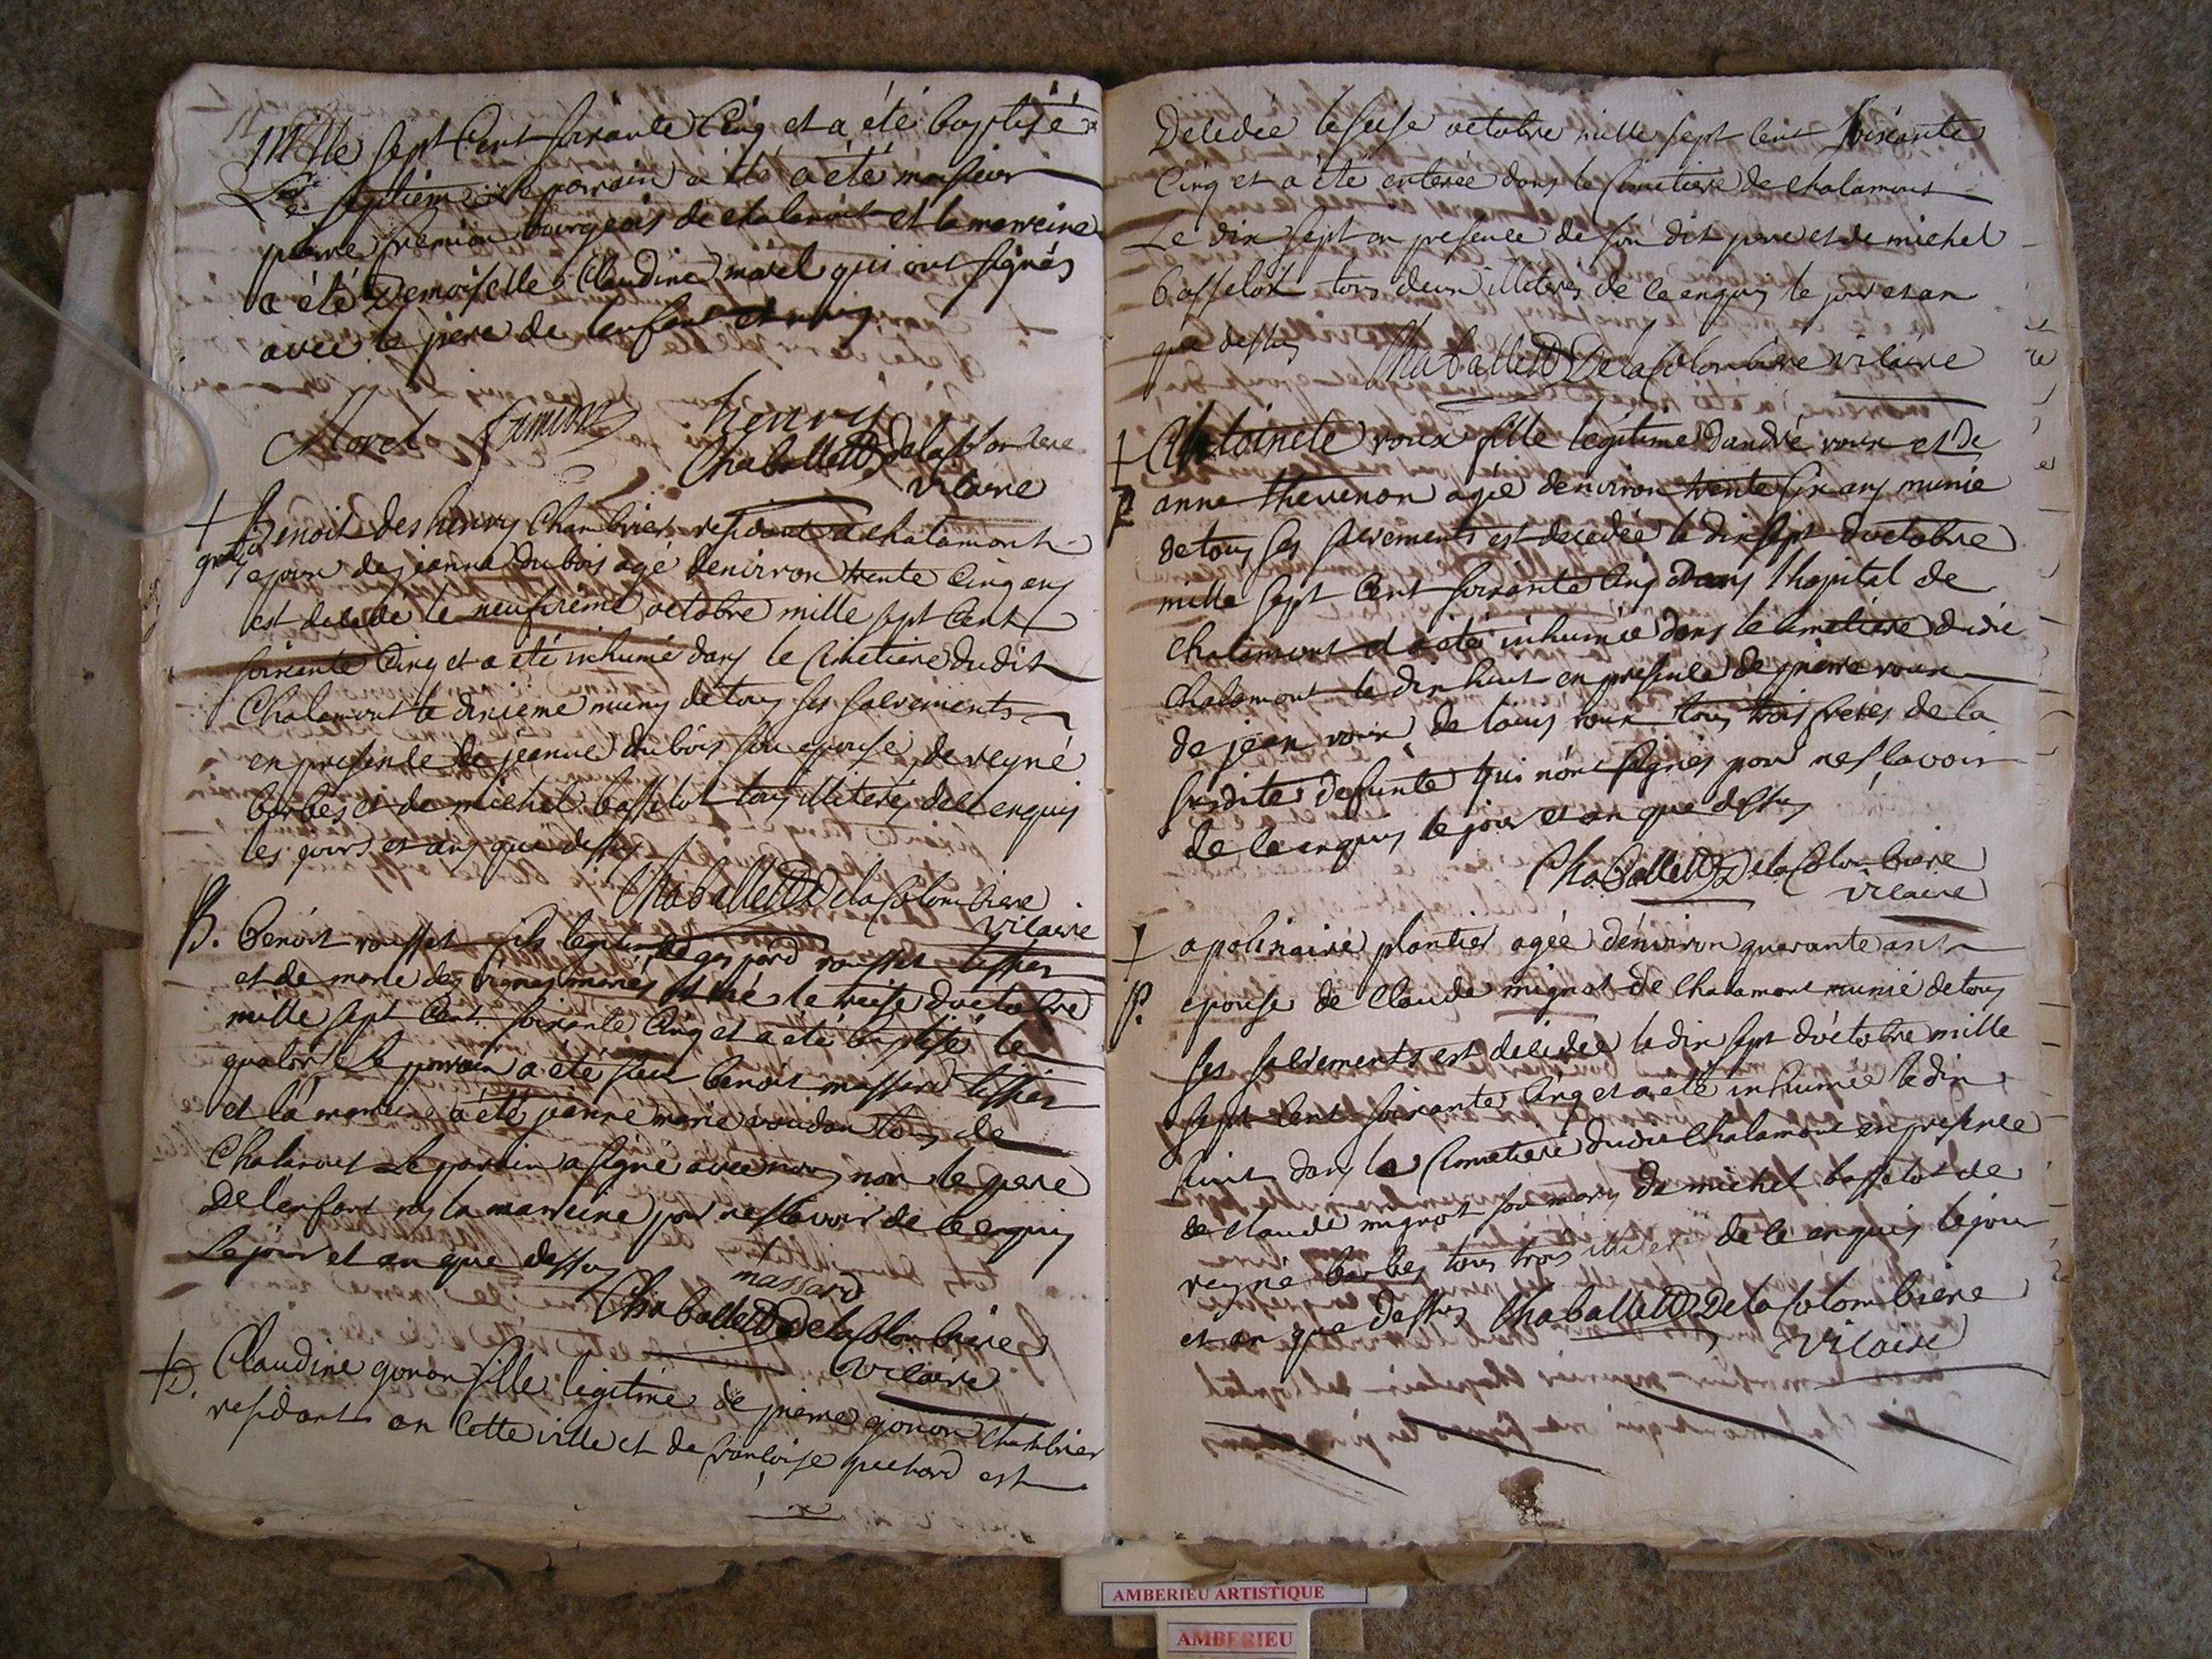 Mille sept Cent soixante Cinq et a été baptisé
Le septieme le parrain a été a été monsieur
pierre fremion bourgeois de chalamont et la marreine
a été Demoiselle Claudine morel qui ont signés
avec le pere de lenfant et moy
Morel fremion henry
Chaballett Delacolombiere
vicaire
+ Benoit des henry Chambrier residant a chalamont
gratis epoux de jeanne dubois agé denviron trente Cinq ans
est decedé le neufvieme octobre mille sept Cent
soixante Cinq et a été inhumé dans le Cimetiere dudit
Chalamont le dixieme muny de tous ses sacrements
en presence de jeanne dubois son epouse, de reyné
barbes et de michel basselot tous illiterés de ce enquis
les jours et ans que dessus
Chaballett Delacolombiere
vicaire
B. benoit rousset fils legitime de gaspard rousset tissier
et de marie des vignes mariés est né le treise doctobre
mille sept Cent soixante Cinq et a été baptisé le
quatorse le parrain a été sieur benoit massard tissier
et la marreine a été jeanne marie voudon tous de
Chalamont le parrain a signé avec nous non le pere
de lenfant ny la marreine pour ne scavoir de ce enquis
le jour et an que dessus
massard
Chaballett Delacolombiere
vicaire
+ D. Claudine gonon fille legitime de pierre gonon Chambrier
residant en Cette ville et de françoise guichard est
Decedée le seise octobre mille sept Cent soixante
Cinq et a été enterée dans le Cimetiere de chalamont
Le dix sept en presence de son dit pere et de michel
basselot tous deux illiterés de ce enquis le jour et an
que dessus Chaballett Delacolombiere vicaire
+ Antoinete roux fille legitime dandré roux et de
P anne thevenon agée denviron trente six ans munie
de tous ses sacrements est decedée le dix sept doctobre
mille sept Cent soixante Cinq dans lhopital de
chalamont et a été inhumée dans le cimetiere dudit
chalamont le dix huit en presence de pierre roux
de jean roux de louis roux tous trois freres de la
susdite defunte qui nont signés pour ne scavoir
de ce enquis le jour et an que dessus
Chaballett Delacolombiere
vicaire
+ apolinaire plantier agée denviron quarante ans
P. epouse de Claude mignot de Chalamont munie de tous
ses sacrements est decedée le dix sept doctobre mille
sept Cent soixante Cinq et a été inhumée le dix
huit dans le Cimetiere dudit Chalamont en presence
de claude mignot son mary de michel basselot de
reyné barbes tous trois illiterés de ce enquis le jour
et an que dessus Chaballett Delacolombiere
vicaire
AMBERIEU ARTISTIQUE
AMBERIEU